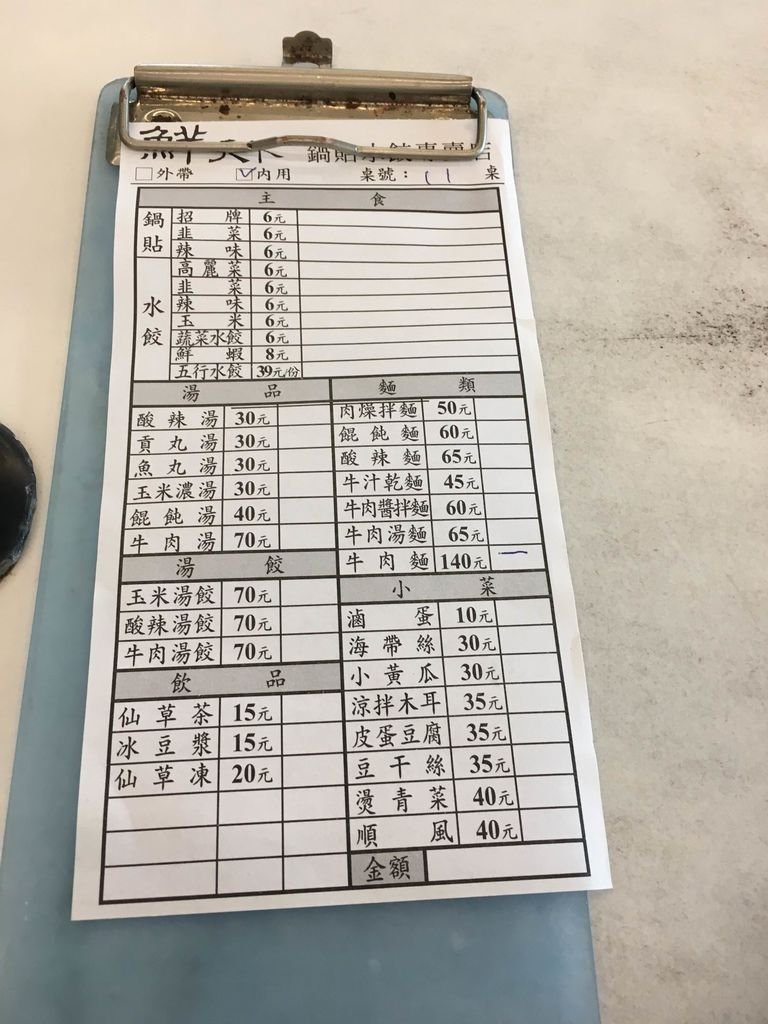 鮮天下 鍋貼水餃專賣店
外帶 內用 桌號： 11 桌
主 食
鍋貼
招牌 6元
韭菜 6元
辣味 6元
水餃
高麗菜 6元
韭菜 6元
辣味 6元
玉米 6元
蔬菜水餃 6元
鮮蝦 8元
五行水餃 39元/份
湯 品
酸辣湯 30元
貢丸湯 30元
魚丸湯 30元
玉米濃湯 30元
餛飩湯 40元
牛肉湯 70元
湯 餃
玉米湯餃 70元
酸辣湯餃 70元
牛肉湯餃 70元
飲 品
仙草茶 15元
冰豆漿 15元
仙草凍 20元
麵 類
肉燥拌麵 50元
餛飩麵 60元
酸辣麵 65元
牛汁乾麵 45元
牛肉醬拌麵 60元
牛肉湯麵 65元
牛肉麵 140元 一
小 菜
滷蛋 10元
海帶絲 30元
小黃瓜 30元
涼拌木耳 35元
皮蛋豆腐 35元
豆干絲 35元
燙青菜 40元
順風 40元
金額